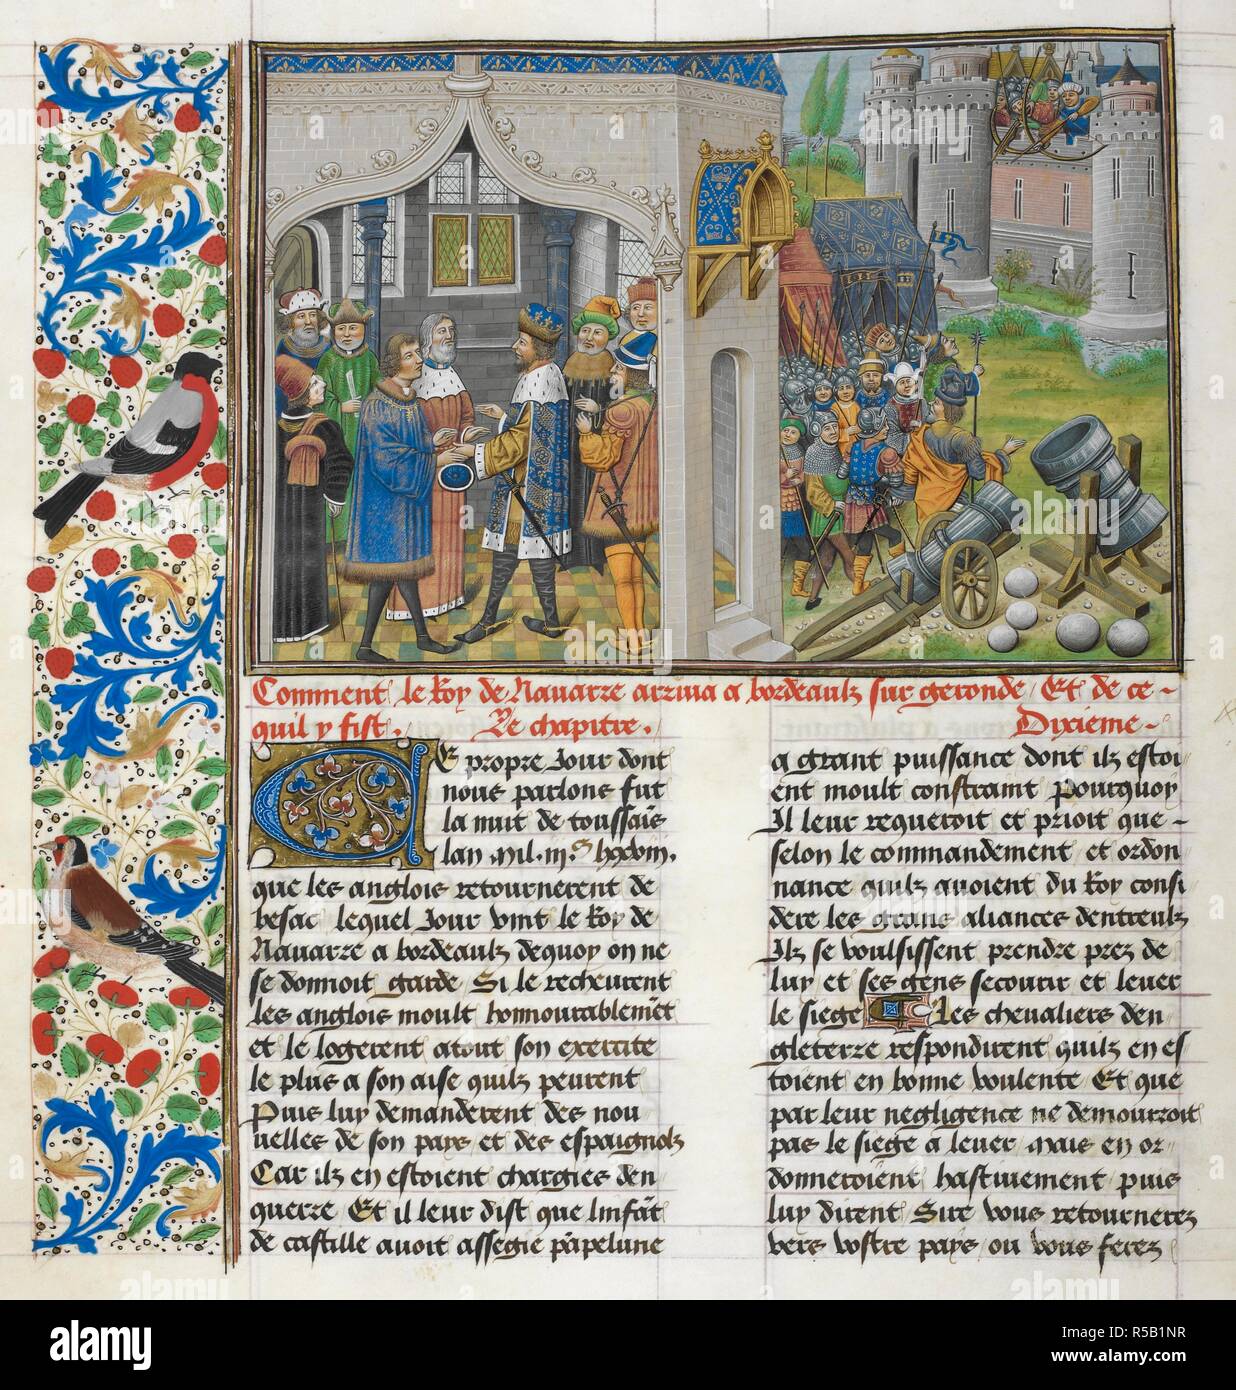 Comment le Roy de Nauarre arriua a bordeaulx sur geronde / Et de ce -
quil y fist . Le chapitre . Dixieme -
CE propre Jour dont
nous parlons fut
la nuit de toussais
lan Mil.
que les anglois retournerent de
besac lequel Jour vint le Roy de
Nauarre a bordeaulx dequoy on ne
se donnoit garde Si le recheurent
les anglois moult honnourablemet
et le logerent atout son exercite
le plus a son aise quilz peurent
Puis luy demanderent des nou
uelles de son pays et des espaignolz
Car ilz en estoient chargies den
querre Et il leur dist que linfat
de castille auoit assegie papelune
a grant puissance dont ilz estoi
ent moult constraint Pourquoy
Il leur requeroit et prioit que -
selon le commandement et ordon
nance quilz auoient du Roy consi
dere les grans aliances dentreulx
Ilz se voulsissent prendre prez de
luy et ses gens secourir et leuer
le siege Les cheualiers den
gleterre respondirent quilz en es
toient en bonne voulente Et que
par leur negligence ne demourroit
pas le siege a leuer mais en or
donneroient hastiuement puis
luy dirent Sire vous retournerez
vers vostre pays ou vous ferez
alamy stock photo
alamy
Image ID: R5B1NR
www.alamy.com